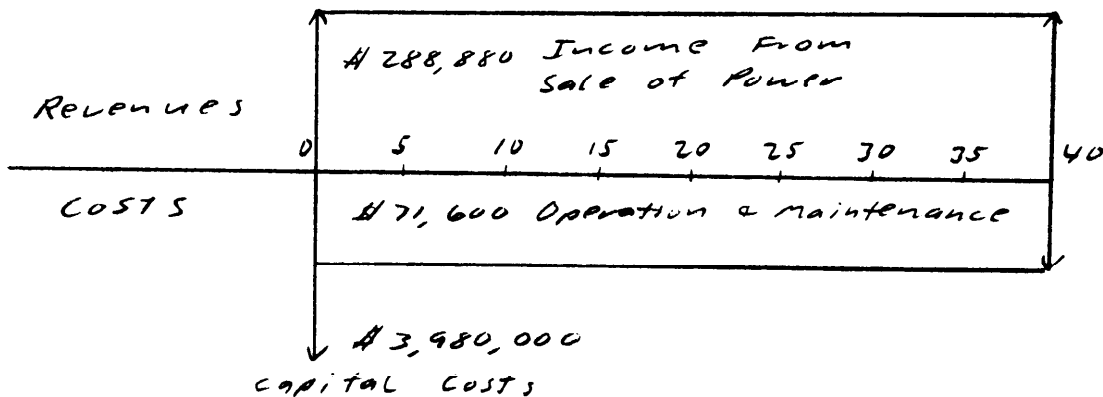 $288,880 Income From
Sale of Power
Revenues
0 5 10 15 20 25 30 35 40
Costs
$71,600 Operation & Maintenance
$3,980,000
Capital Costs